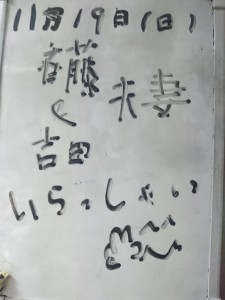 11月19日(日)
齋藤 夫妻
と
吉田
いらっしゃい